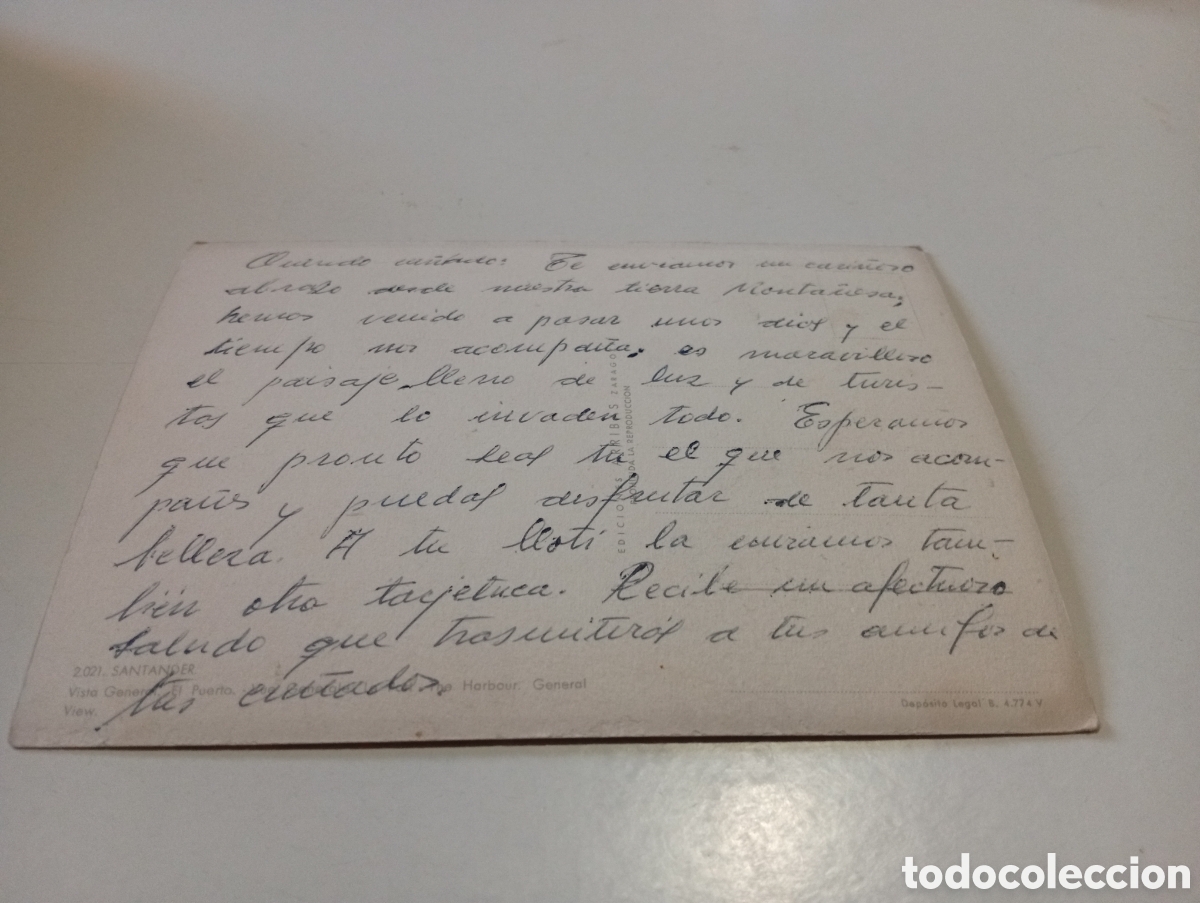 Querido cuñado: Te enviamos un cariñoso
abrazo desde nuestra tierra Montañesa,
hemos venido a pasar unos dias y el
tiempo nos acompaña, es maravilloso
el paisaje lleno de luz y de turis-
tas que lo invaden todo. Esperamos
que pronto seas tu el que nos acom-
pañes y puedas disfrutar de tanta
belleza. A tu Moti la enviamos tam-
bién otra tarjetuca. Recibe un afectuoso
saludo que trasmitirás a tus amigos de
tus cuñados.
EDICIONES ARRIBAS ZARAGO
LA REPRODUCCION
2.021. SANTANDER
Vista General. El Puerto. Harbour. General
View.
Depósito Legal B. 4.774 V
todocoleccion